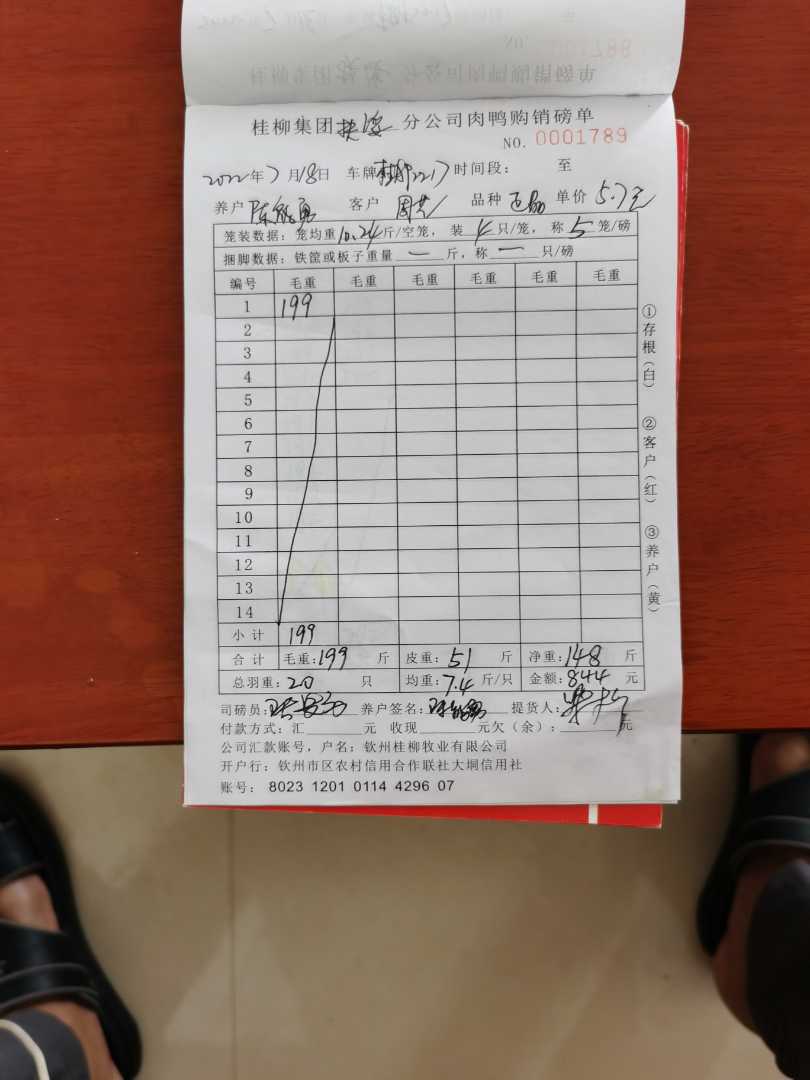 桂柳集团 分公司肉鸭购销磅单
NO. 0001789
2022年7月18日 车牌 2217 时间段： 至
养户 陈 勇 客户 周芳 品种 单价 5.7元
笼装数据：笼均重10.24斤/空笼，装 4 只/笼，称 5 笼/磅
捆脚数据：铁筐或板子重量 — 斤，称 — 只/磅
编号 毛重 毛重 毛重 毛重 毛重 毛重
1 199
2
3
4
5
6
7
8
9
10
11
12
13
14
小 计 199
合 计 毛重:199 斤 皮重:51 斤 净重:148 斤
总羽重:20 只 均重:7.4 斤/只 金额:844 元
司磅员: 养户签名: 提货人:
付款方式：汇 元 收现 元欠（余）： 元
公司汇款账号，户名：钦州桂柳牧业有限公司
开户行：钦州市区农村信用合作联社大垌信用社
账号： 8023 1201 0114 4296 07
①存根（白） ②客户（红） ③养户（黄）